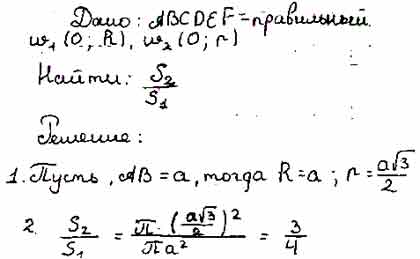 Дано: ABCDEF – правильный.
w₁ (O; R), w₂ (O; r)
Найти: S₂/S₁
Решение:
1. Пусть, AB = a, тогда R = a; r = a√3/2
2. S₂/S₁ = π · (a√3/2)²/πa² = 3/4